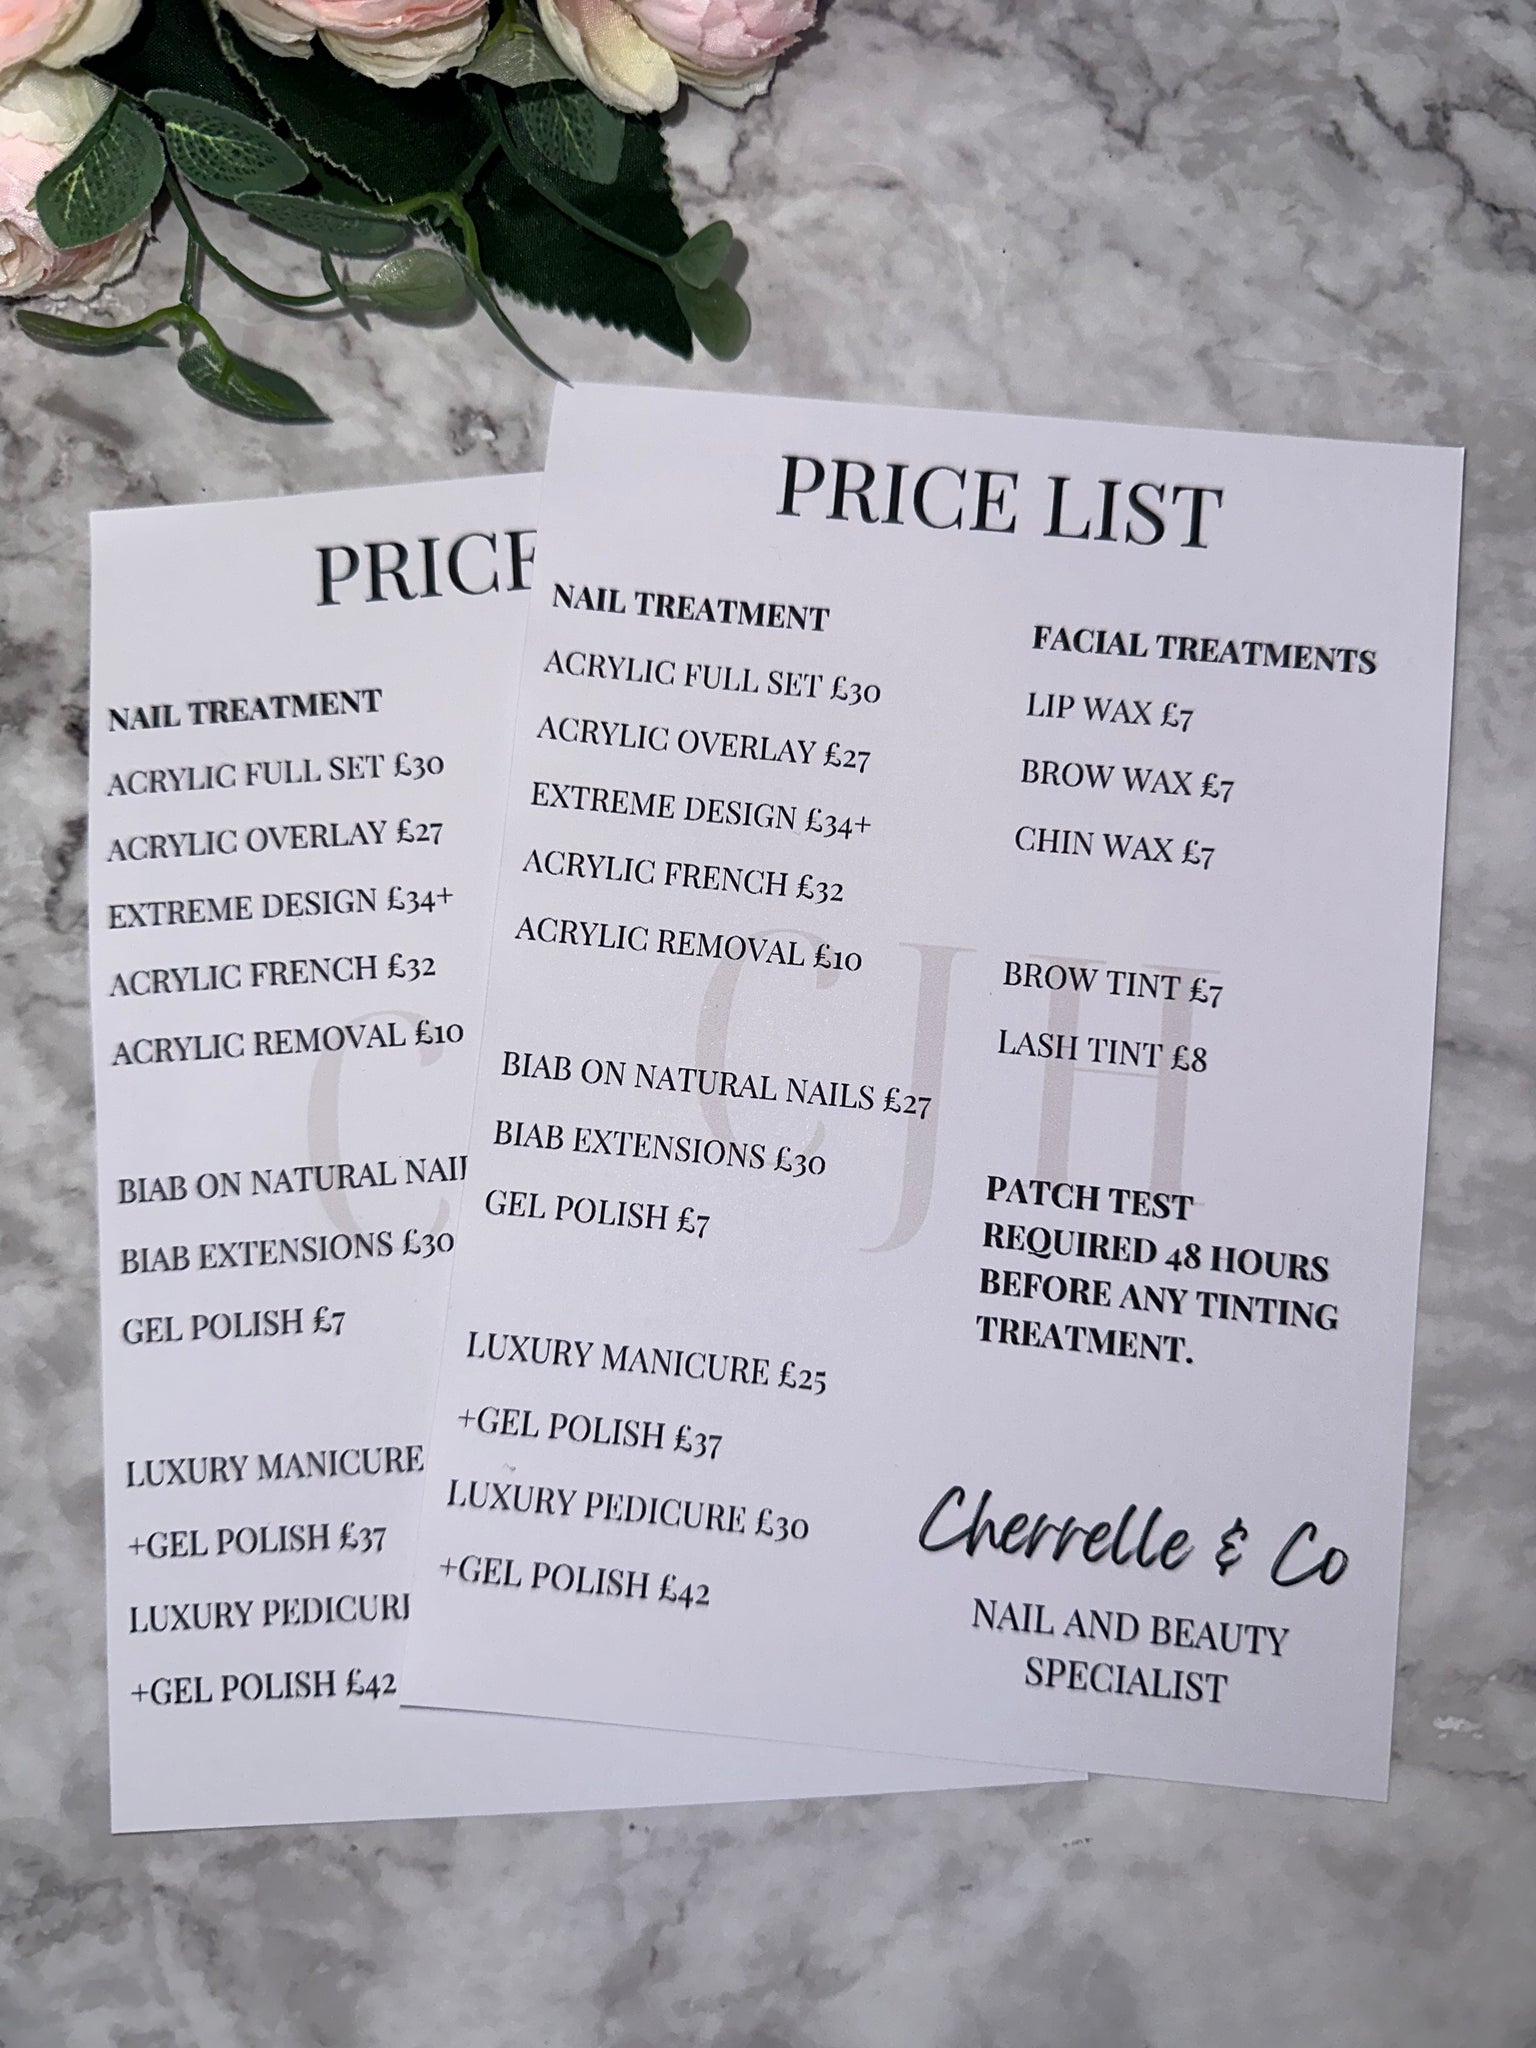 PRICE
NAIL TREATMENT
ACRYLIC FULL SET £30
ACRYLIC OVERLAY £27
EXTREME DESIGN £34+
ACRYLIC FRENCH £32
ACRYLIC REMOVAL £10
BIAB ON NATURAL
BIAB EXTENSIONS £30
GEL POLISH £7
LUXURY MANICURE
+GEL POLISH £37
LUXURY
+GEL POLISH £42
C
PRICE LIST
NAIL TREATMENT
ACRYLIC FULL SET £30
ACRYLIC OVERLAY £27
EXTREME DESIGN £34+
ACRYLIC FRENCH £32
ACRYLIC REMOVAL £10
BIAB ON NATURAL NAILS £27
BIAB EXTENSIONS £30
GEL POLISH £7
LUXURY MANICURE £25
+GEL POLISH £37
LUXURY PEDICURE £30
+GEL POLISH £42
CJH
FACIAL TREATMENTS
LIP WAX £7
BROW WAX £7
CHIN WAX £7
BROW TINT £7
LASH TINT £8
PATCH TEST
REQUIRED 48 HOURS
BEFORE ANY TINTING
TREATMENT.
Cherrelle & Co
NAIL AND BEAUTY
SPECIALIST